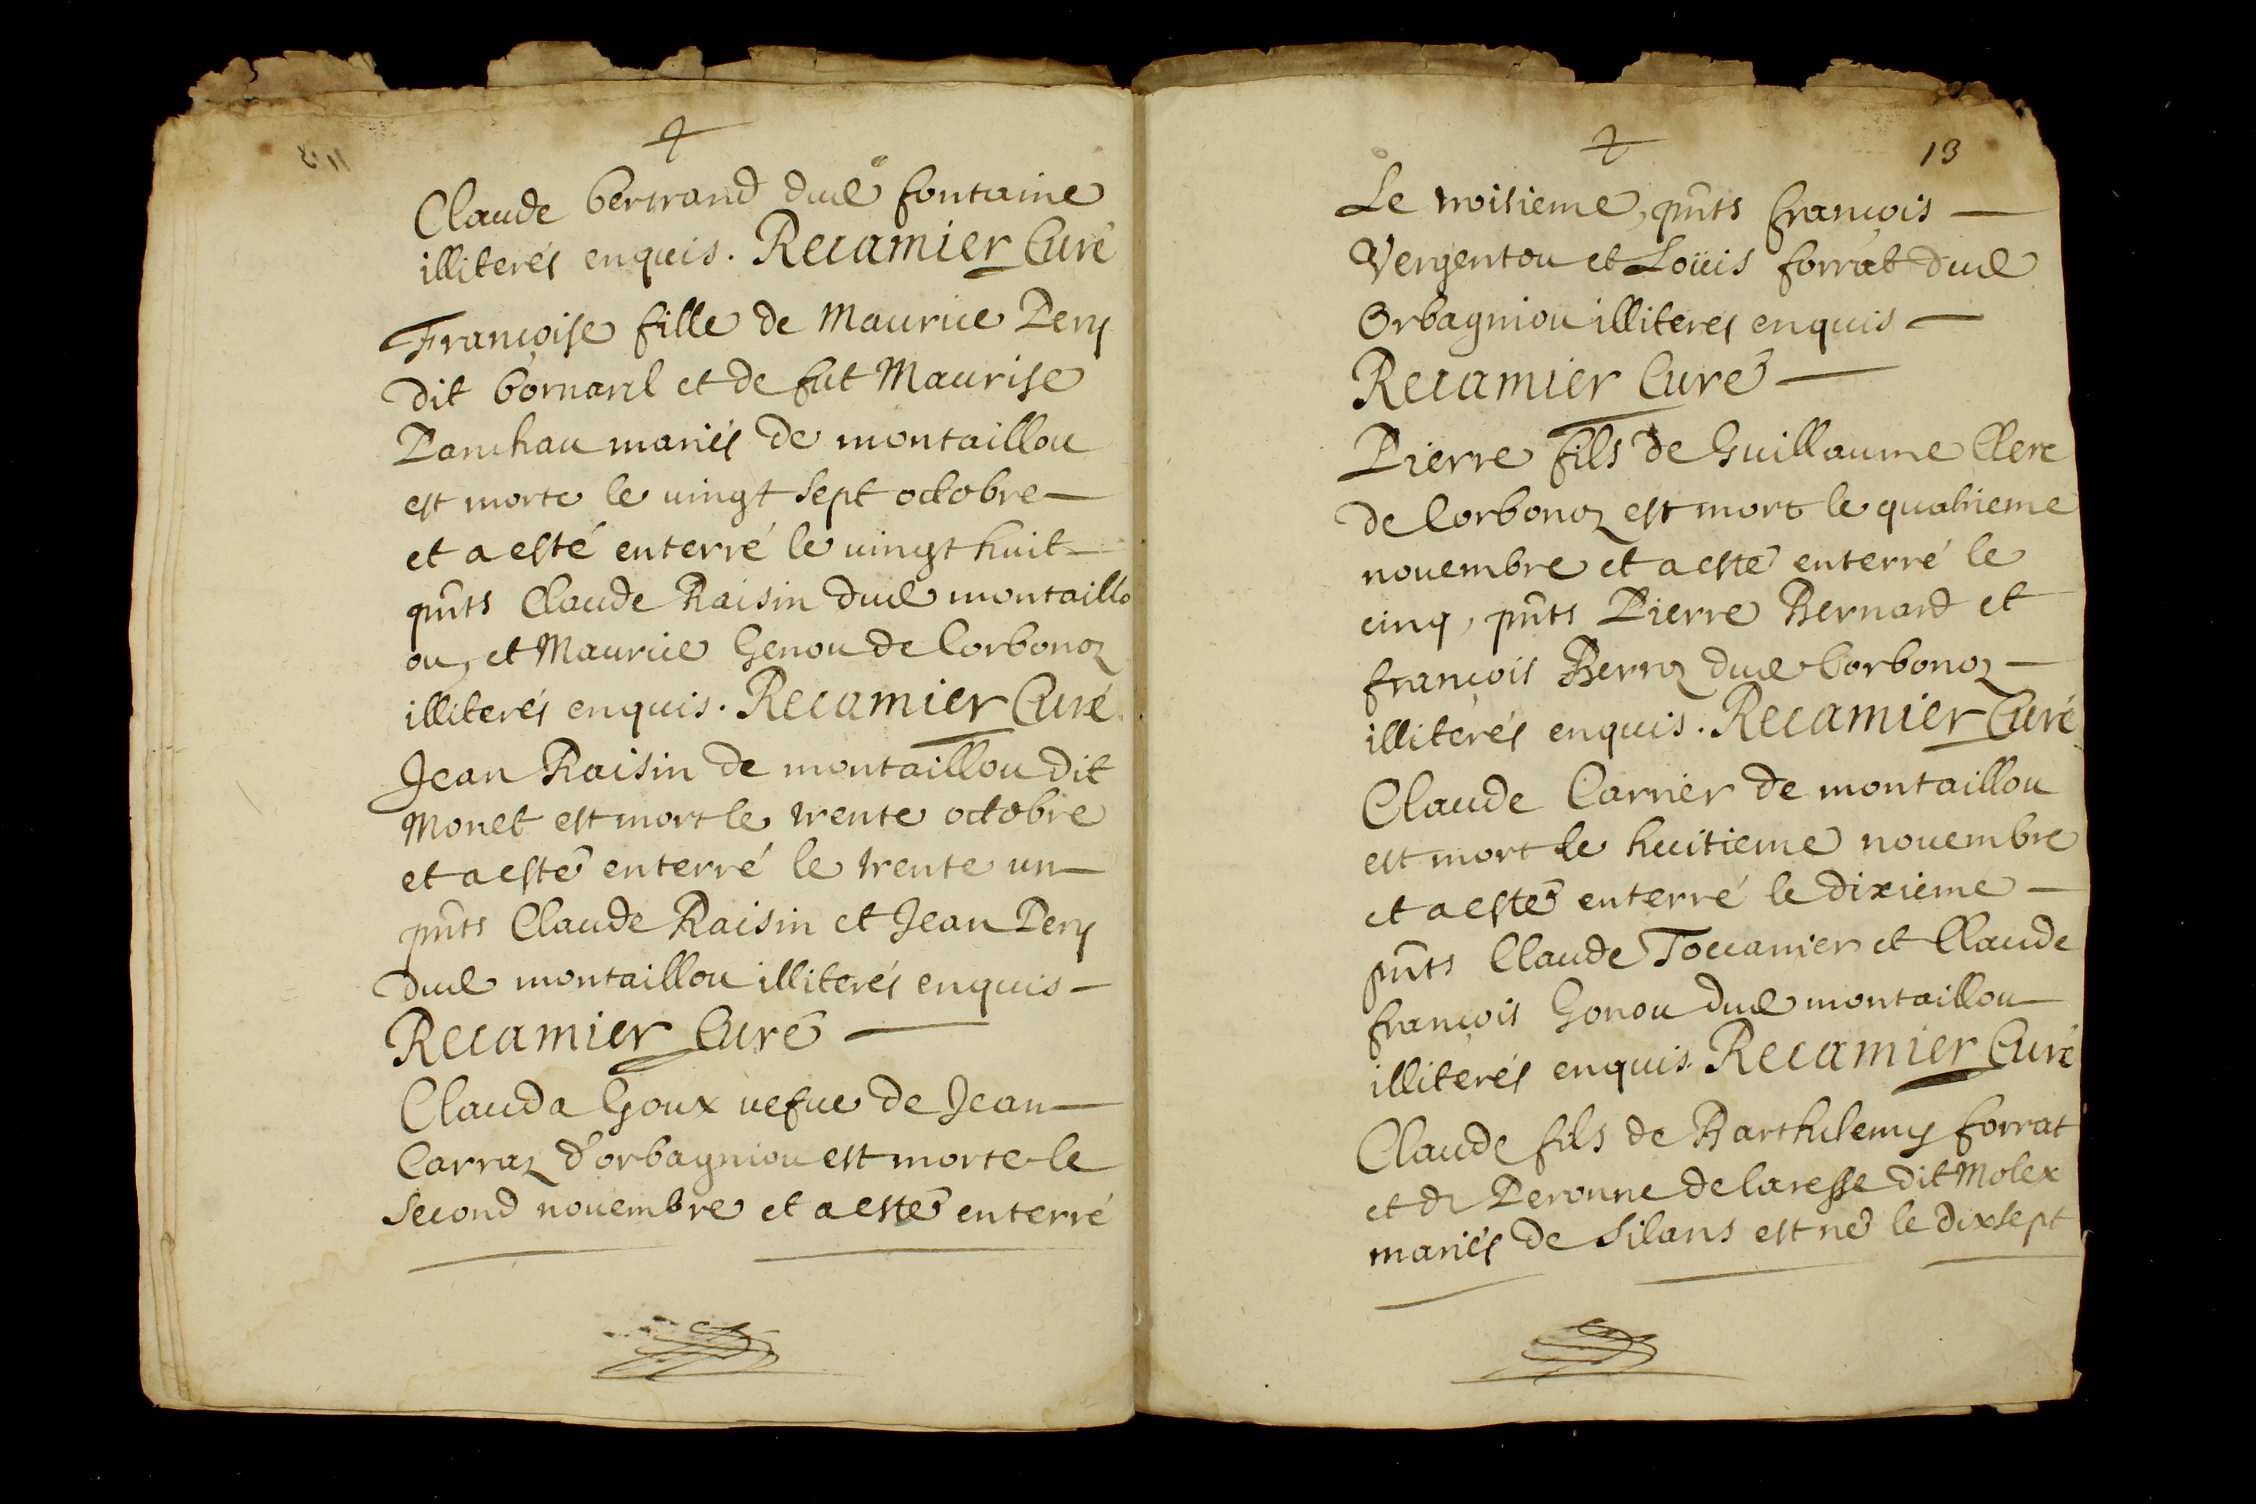 Claude bertrand dud fontaine
illiterés enquis. Recamier Curé
Françoise fille de Maurice Pery
dit bornard et de fut Maurise
Panchau mariés de montaillou
est morte le uingt sept octobre
et a esté enterré le uingt huit
pnts Claude Raisin dud montaillo
ou, et Maurice Genou de Corbonoz
illiterés enquis. Recamier Curé
Jean Raisin de montaillou dit
Monet est mort le trente octobre
et a esté enterré le trente un
pnts Claude Raisin et Jean Pery
dud montaillou illiterés enquis
Recamier Curé
Clauda Goux uefue de Jean
Carraz d'orbagniou est morte le
second nouembre et a esté enterré
13
Le troisieme, pnts françois
Vergentou et Loüis forrat dud
Orbagniou illiterés enquis
Recamier Curé
Pierre fils de Guillaume Clerc
de Corbonoz est mort le quatrieme
nouembre et a esté enterré le
cinq, pnts Pierre Bernard et
françois Berroz dud Corbonoz
illiterés enquis. Recamier Curé
Claude Carrier de montaillou
est mort le huitieme nouembre
et a esté enterré le dixieme
pnts Claude Toccanier et Claude
françois Gonou dud montaillou
illiterés enquis. Recamier Curé
Claude fils de Barthelemy forrat
et de Peronne delaresse dit Molex
mariés de Silans est né le dixsept